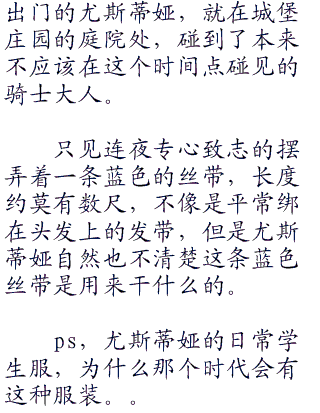 出门的尤斯蒂娅，就在城堡
庄园的庭院处，碰到了本来
不应该在这个时间点碰见的
骑士大人。
只见连夜专心致志的摆
弄着一条蓝色的丝带，长度
约莫有数尺，不像是平常绑
在头发上的发带，但是尤斯
蒂娅自然也不清楚这条蓝色
丝带是用来干什么的。
ps，尤斯蒂娅的日常学
生服，为什么那个时代会有
这种服装。。